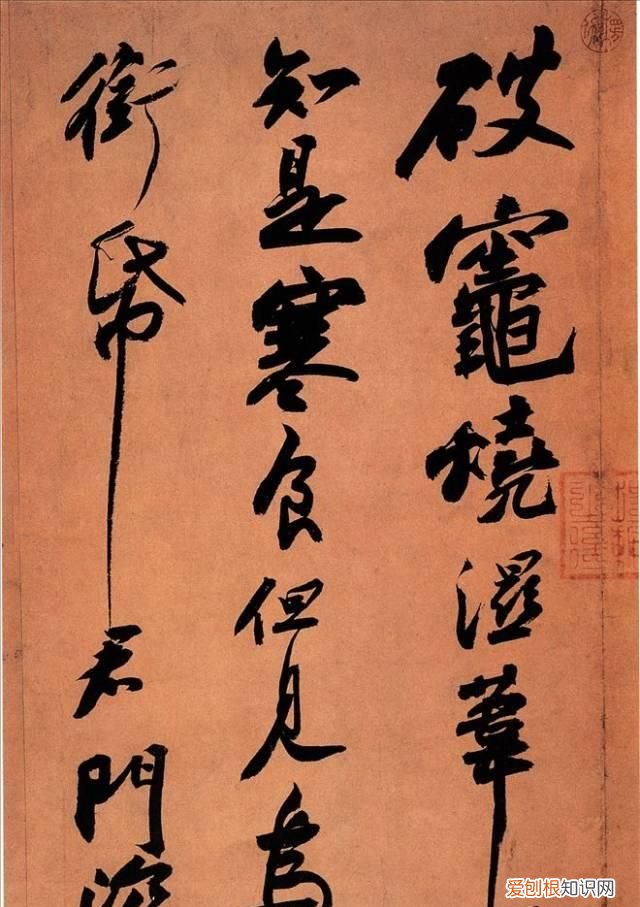 破竈燒濕葦
知是寒食但見烏
銜帋君門
爱刨根知识网